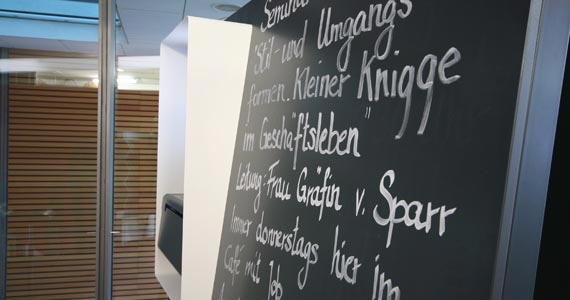 Seminar
"Stil- und Umgangs
formen. Kleiner Knigge
im Geschäftsleben"
Leitung: Frau Gräfin v. Sparr
Immer donnerstags hier im
Café mit Job